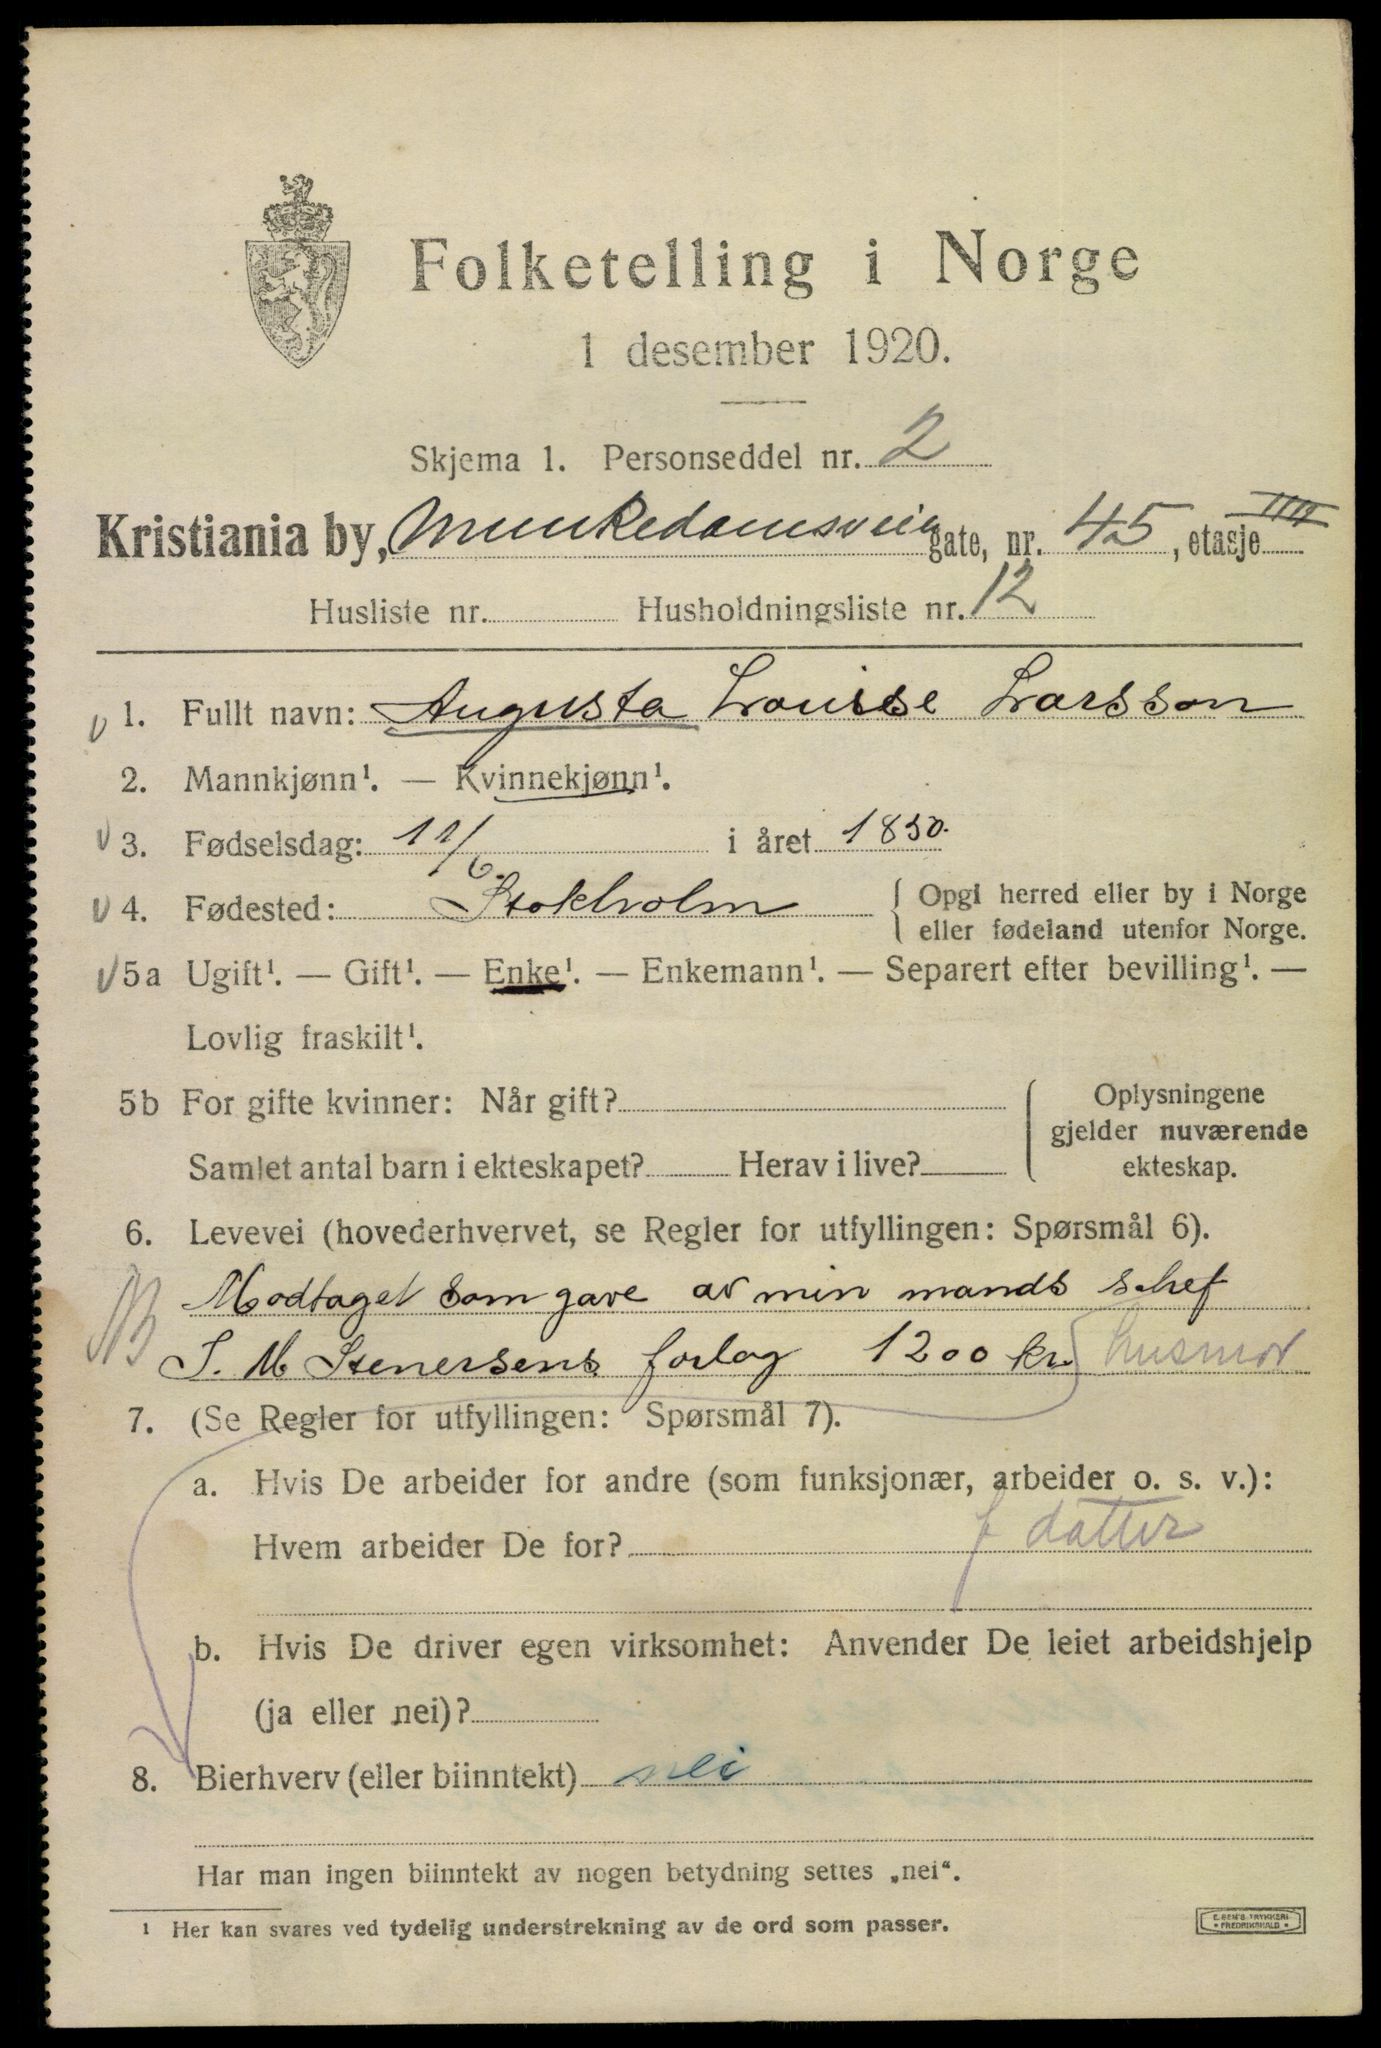 Folketelling i Norge
1 desember 1920.
Skjema 1. Personseddel nr. 2
Kristiania by, Munkedamsveien gate, nr. 45, etasje IIII
Husliste nr. Husholdningsliste nr. 12
1. Fullt navn: Augusta Louise Larsson
2. Mannkjønn¹. — Kvinnekjønn¹.
3. Fødselsdag: 11/6. i året 1850.
4. Fødested: Stokholm { Opgi herred eller by i Norge
eller fødeland utenfor Norge.
5a Ugift¹. — Gift¹. — Enke¹. — Enkemann¹. — Separert efter bevilling¹. —
Lovlig fraskilt¹.
5b For gifte kvinner: Når gift?
Samlet antal barn i ekteskapet? Herav i live?
Oplysningene
gjelder nuværende
ekteskap.
6. Levevei (hovederhvervet, se Regler for utfyllingen: Spørsmål 6).
Modtaget som gave av min mands schef
J. M Stenersens forlag 1200 kr. husmor
7. (Se Regler for utfyllingen: Spørsmål 7).
a. Hvis De arbeider for andre (som funksjonær, arbeider o. s. v.):
Hvem arbeider De for? f datter
b. Hvis De driver egen virksomhet: Anvender De leiet arbeidshjelp
(ja eller nei)?
8. Bierhverv (eller biinntekt) nei
Har man ingen biinntekt av nogen betydning settes „nei“.
¹ Her kan svares ved tydelig understrekning av de ord som passer.
E. SEM'S TRYKKERI
• FREDRIKSHALD •